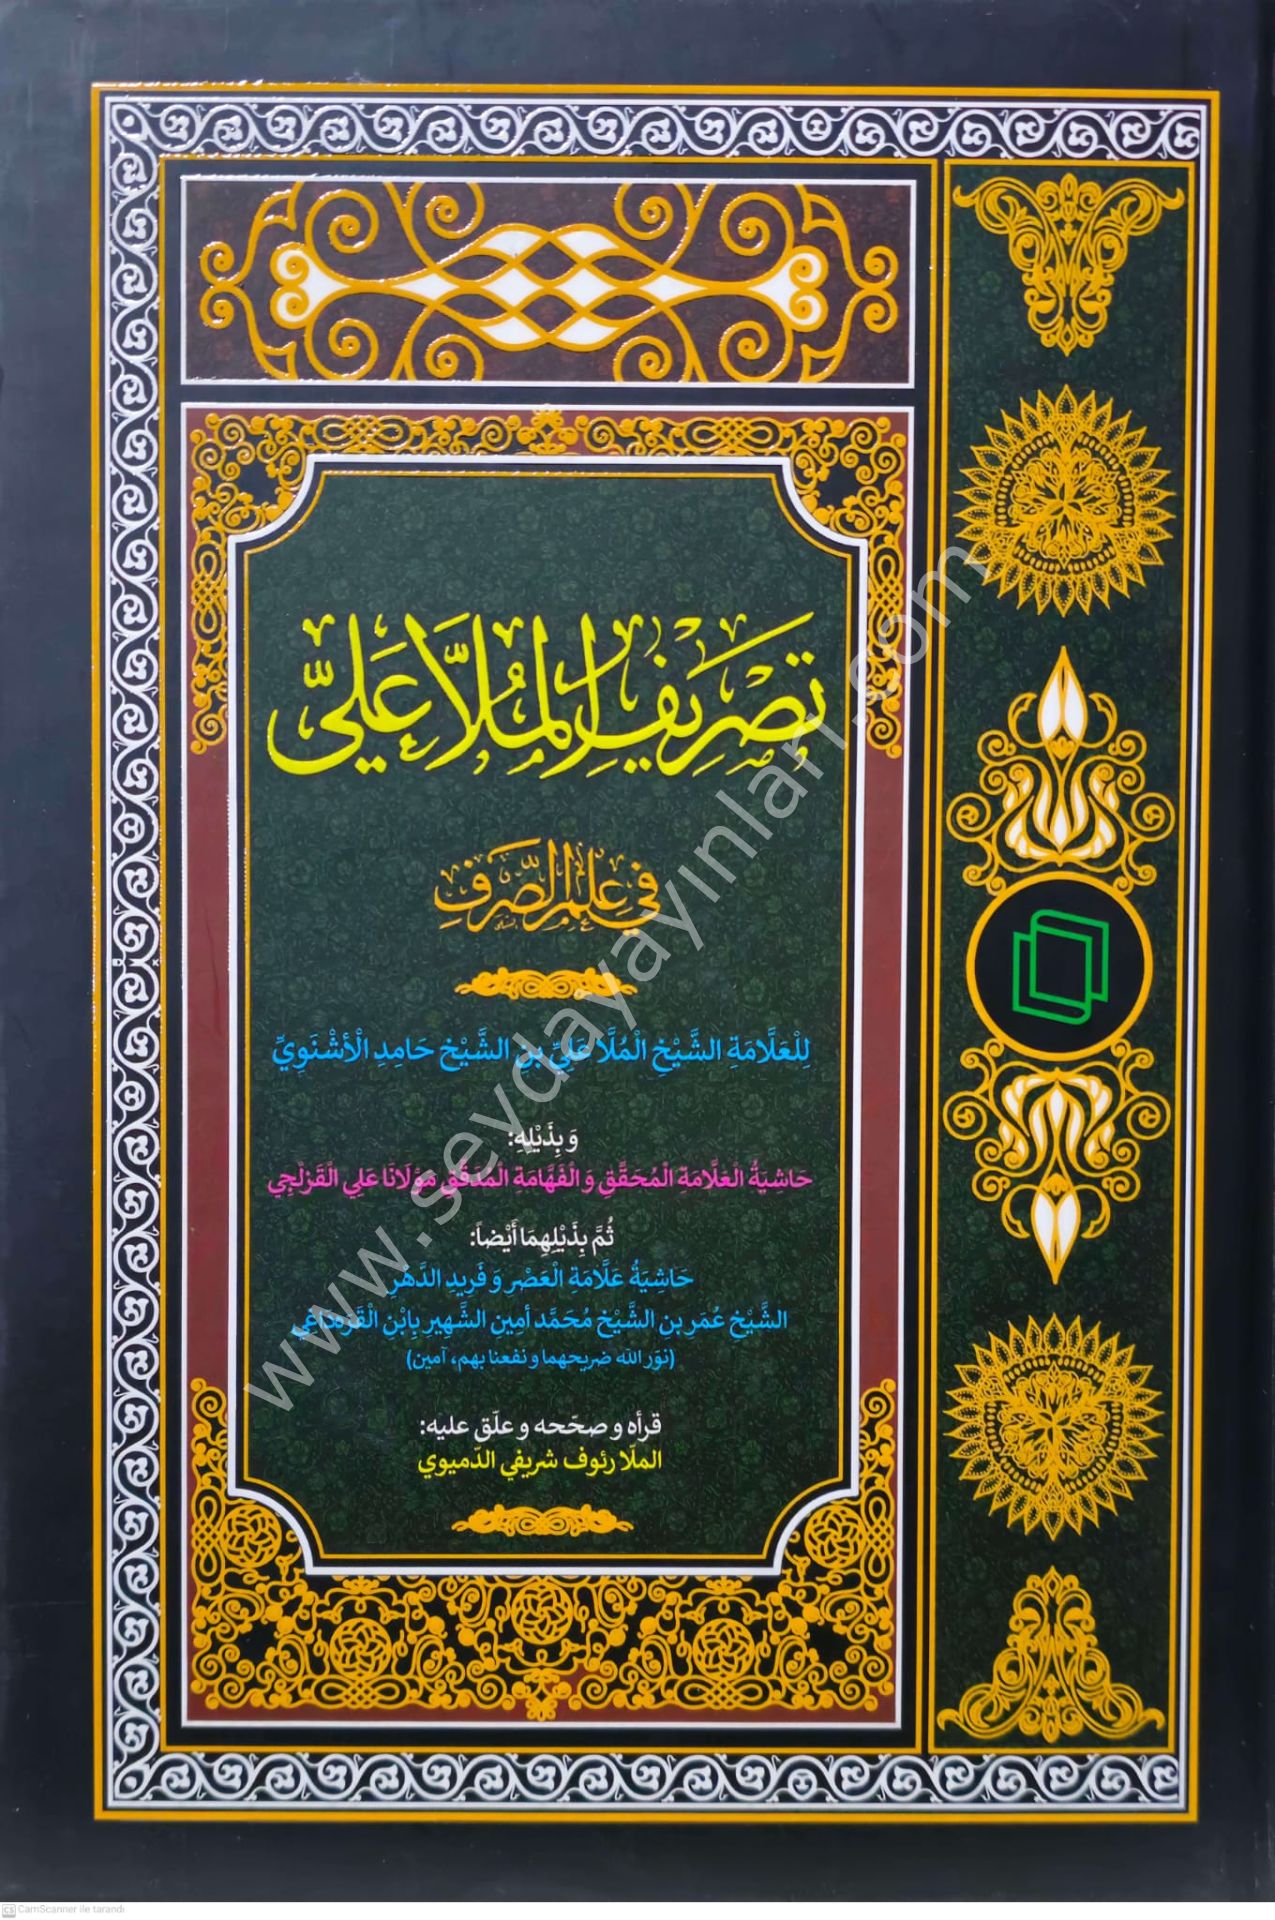 تَصْرِيفُ الْمُلَّا عَلِيّ
فِي عِلْمِ الصَّرْفِ
لِلْعَلَّامَةِ الشَّيْخِ الْمُلَّا عَلِيِّ بنِ الشَّيْخ حَامِدِ الْأُشْنَوِيِّ
وَ بِذَيْلِهِ:
حَاشِيَةُ الْعَلَّامَةِ الْمُحَقَّقِ وَ الْفَهَّامَةِ الْمُدَقَّقِ مَوْلَانَا عَلِي الْقَزِلْجِي
ثُمَّ بِذَيْلِهِمَا أَيْضاً:
حَاشِيَةُ عَلَّامَةِ الْعَصْرِ وَ فَرِيدِ الدَّهْرِ
الشَّيْخِ عُمَر بنِ الشَّيْخ مُحَمَّد أمِين الشَّهِيرِ بِابْنِ الْقَرَهْدَاغِي
(نوّر الله ضريحهما و نفعنا بهم، آمين)
قرأه و صحّحه و علّق عليه:
الملّا رئوف شريفي الدّميوي
www.sevdayayınları.com
CS CamScanner ile tarandı